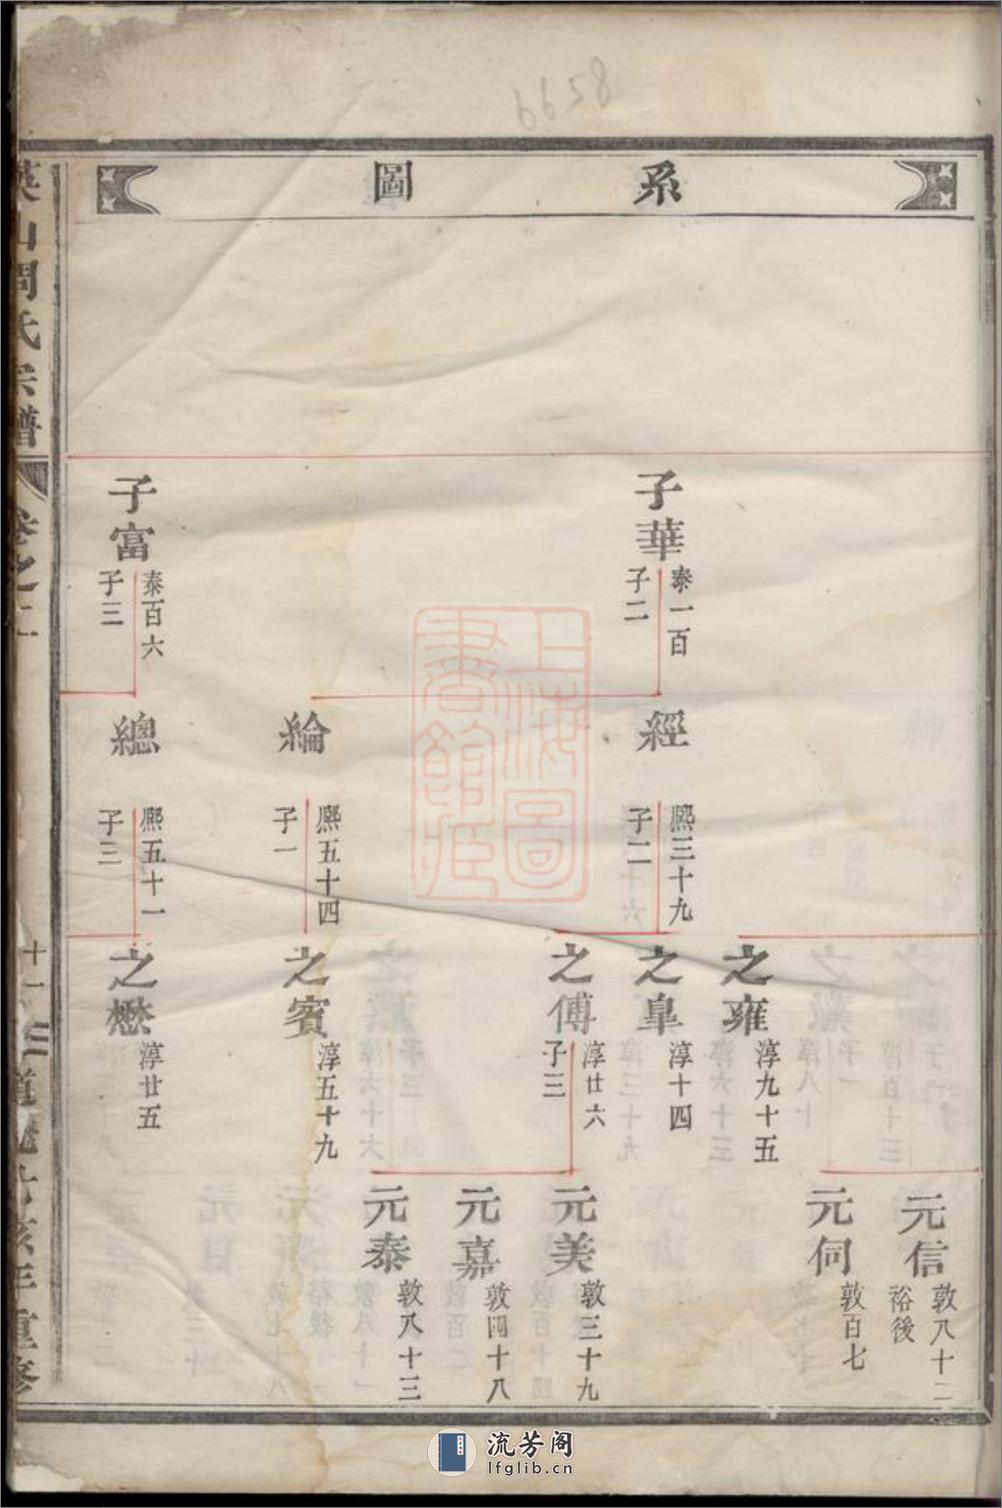 6658
系圖
子華
泰一百
子二
子富
泰百六
子三
經
熙三十九
子二
綸
熙五十四
子一
總
熙五十一
子三
之雍
淳九十五
之皐
淳十四
之傅
淳廿六
子三
之賓
淳五十九
之懋
淳廿五
元信
敦八十二
裕後
元伺
敦百七
元美
敦三十九
元嘉
敦四十八
元泰
敦八十三
山周氏宗譜
卷之二
十一
亥年重修
上海圖書館藏
流芳阁
lfglib.cn